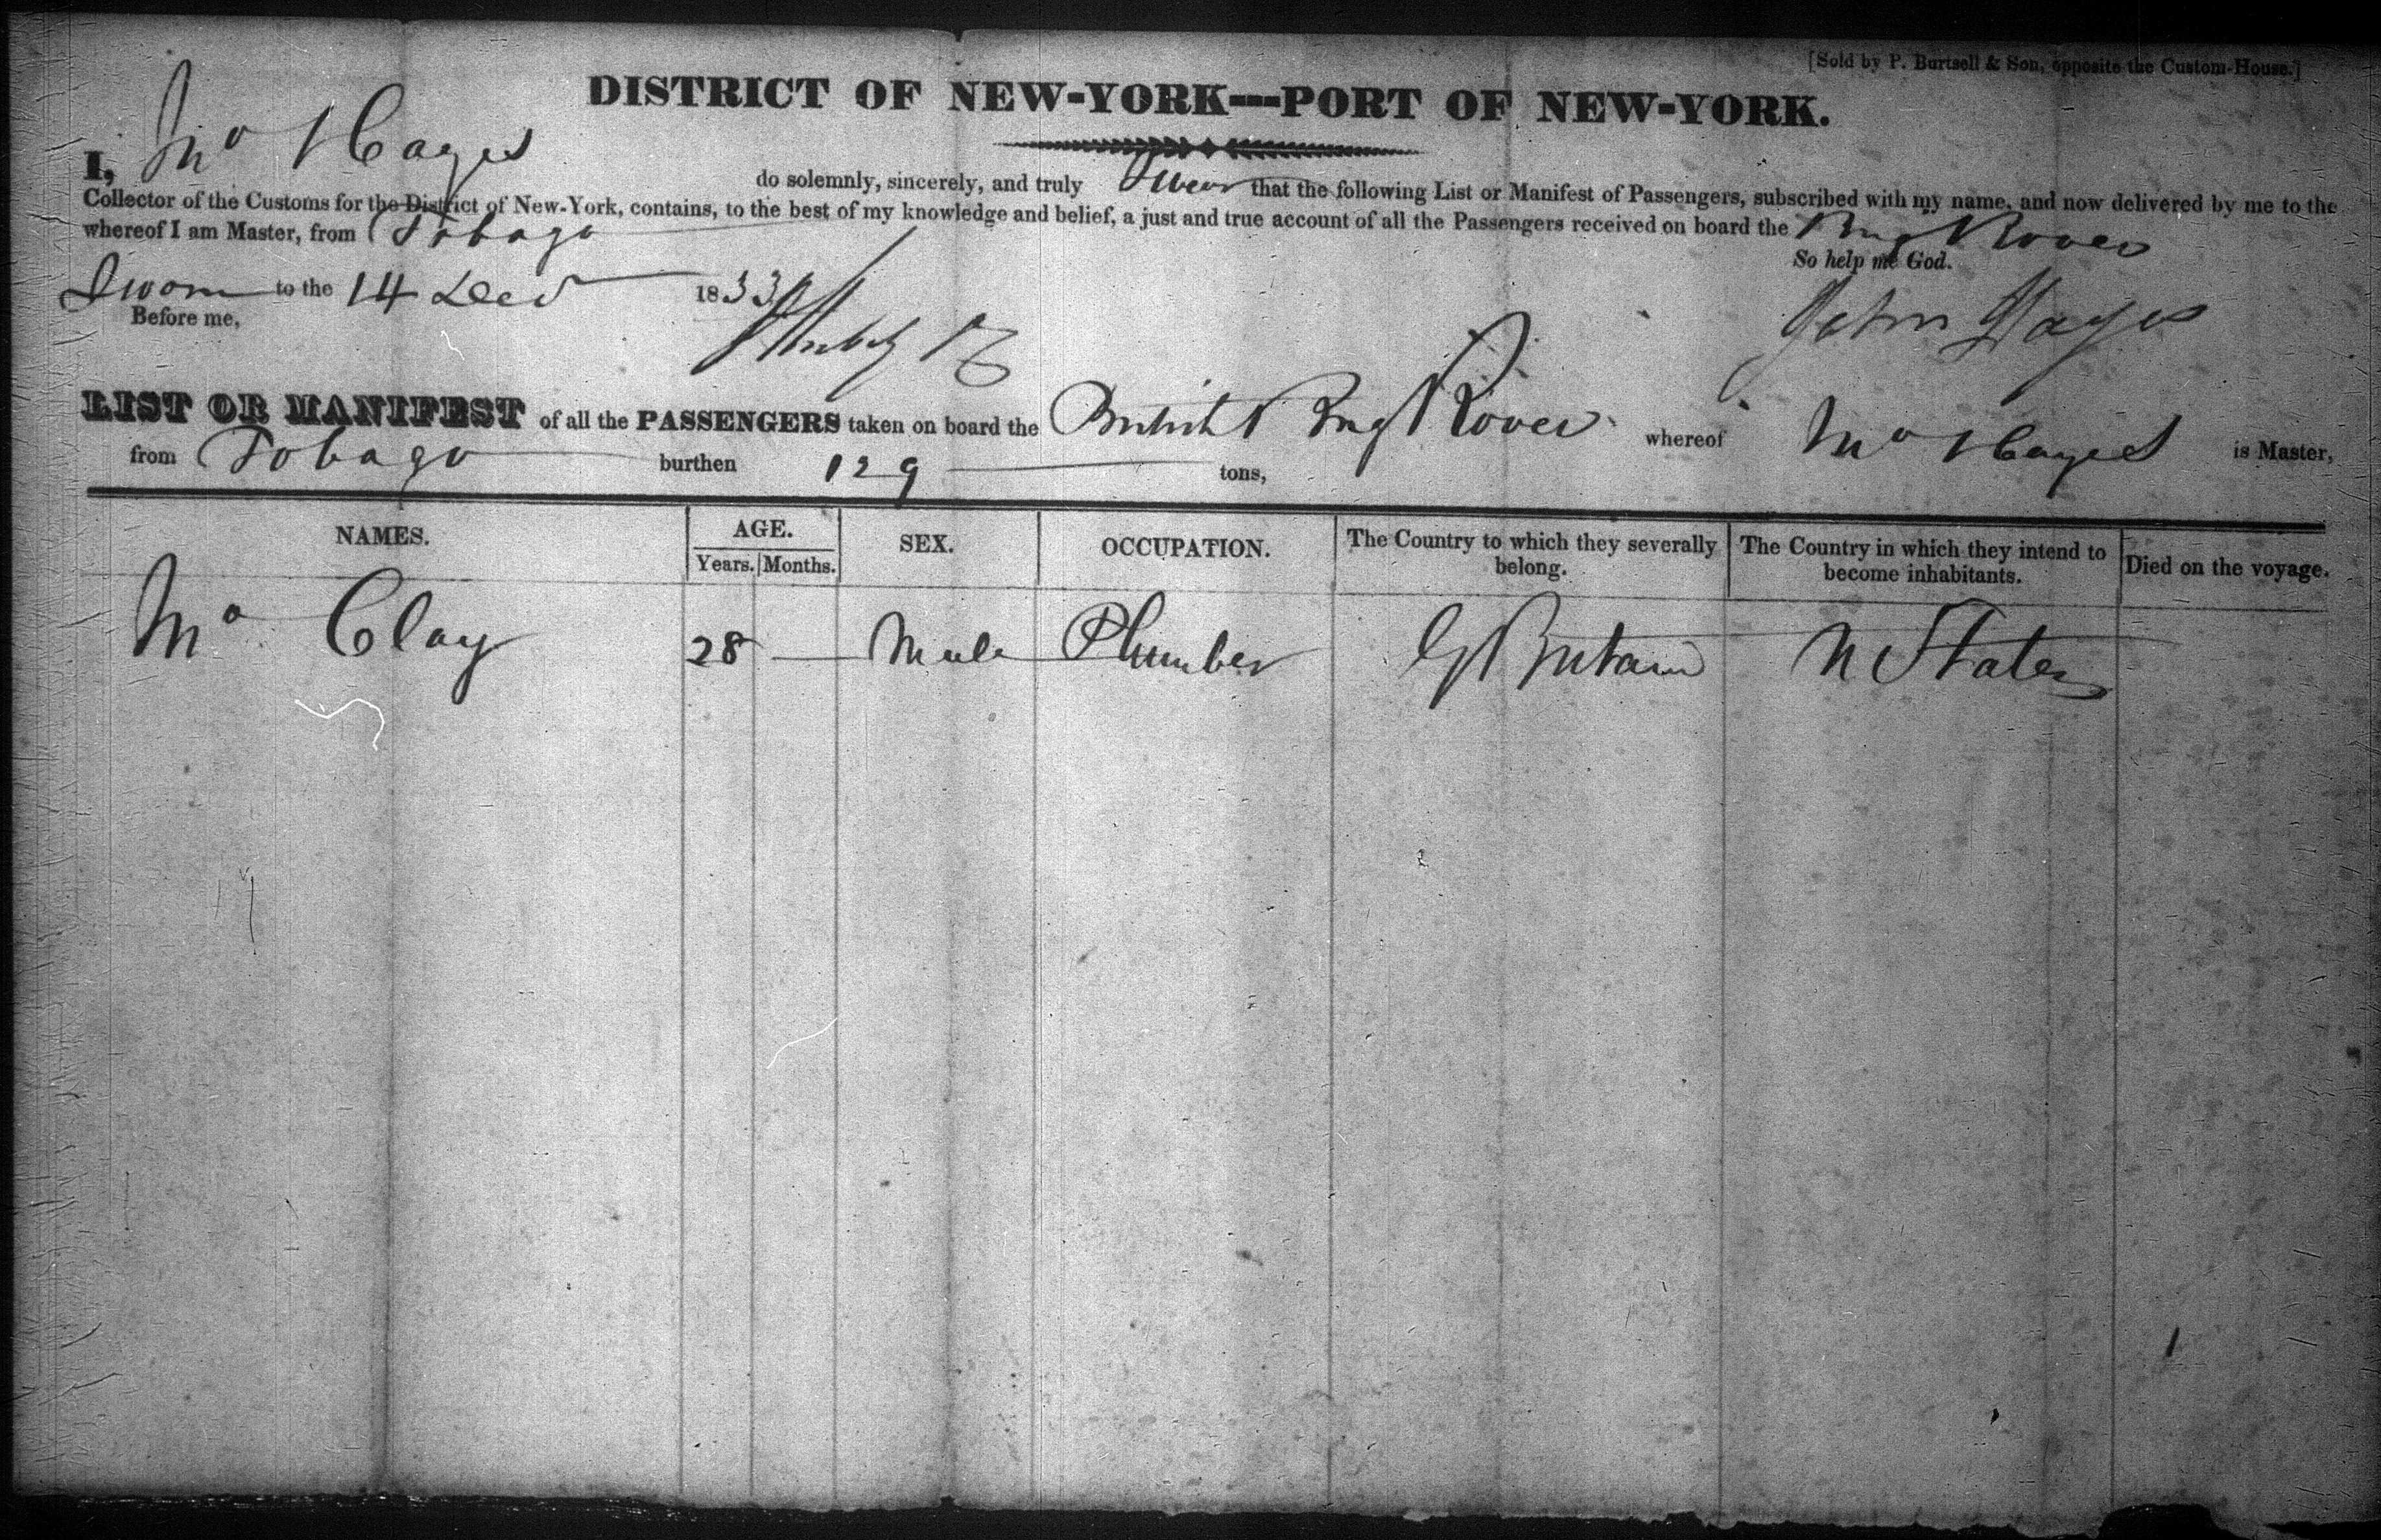 [Sold by P. Burtsell & Son, opposite the Custom-House.]
DISTRICT OF NEW-YORK---PORT OF NEW-YORK.
I, Mr Hayes do solemnly, sincerely, and truly Swear that the following List or Manifest of Passengers, subscribed with my name, and now delivered by me to the
Collector of the Customs for the District of New-York, contains, to the best of my knowledge and belief, a just and true account of all the Passengers received on board the Brig Rover
whereof I am Master, from Tobago
So help me God.
Sworn to the 14 Decr 1833
Before me,
John Hayes
LIST OR MANIFEST of all the PASSENGERS taken on board the British Brig Rover whereof Mr Hayes is Master,
from Tobago burthen 129 tons,
NAMES. AGE. SEX. OCCUPATION. The Country to which they severally belong. The Country in which they intend to become inhabitants. Died on the voyage.
Years. Months.
Mr Clay 28 Male Plumber G Britain U States